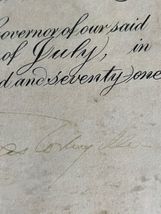 Governor of our said
of July, in
d and seventy one